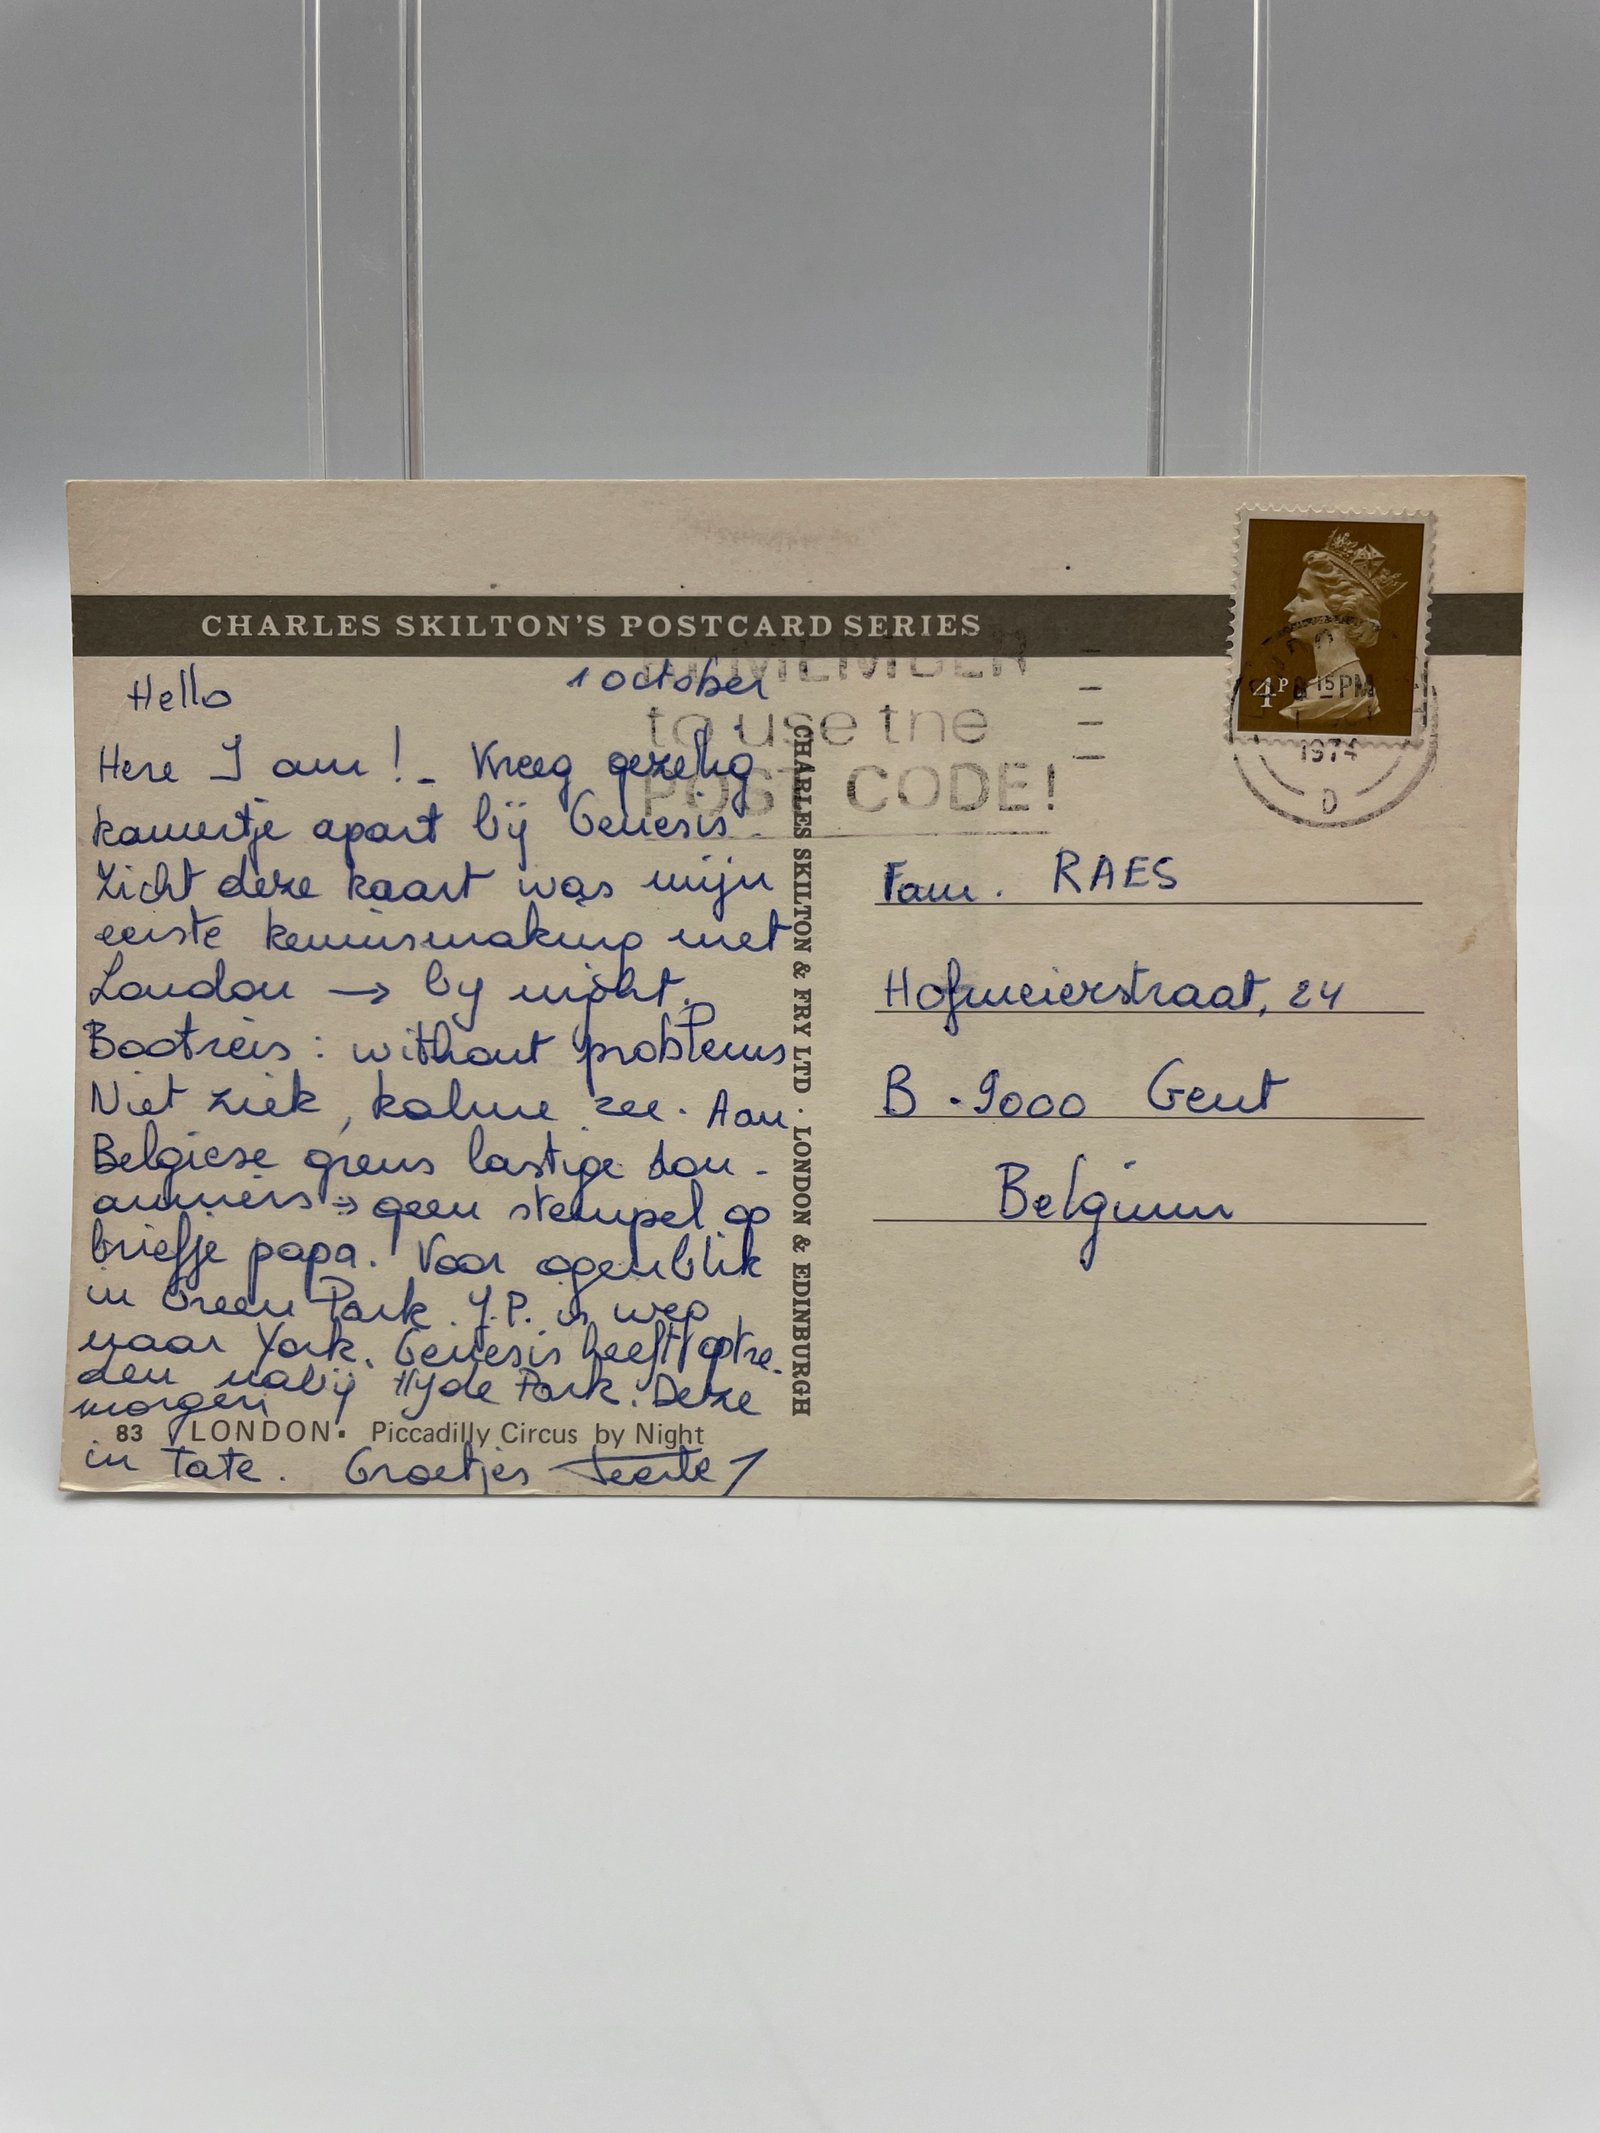 CHARLES SKILTON'S POSTCARD SERIES
REMEMBER
to use the
POST CODE!
4P
15 PM
1974
D
Hello 1 october
Here I am! - Kreeg gezellig
kamertje apart bij Genesis.
Zicht deze kaart was mijn
eerste kennismaking met
London → by night.
Bootreis: without problems
Niet ziek, kalme zee. Aan
Belgiese grens lastige dou-
anniers → geen stempel op
briefje papa. Voor ogenblik
in Green Park. J.P. is weg
naar York. Genesis heeft optre-
den nabij Hyde Park. Deze
morgen
83 LONDON. Piccadilly Circus by Night
in Tate. Groetjes
CHARLES SKILTON & FRY LTD · LONDON & EDINBURGH
Fam. RAES
Hofmeierstraat, 24
B-9000 Gent
Belgium